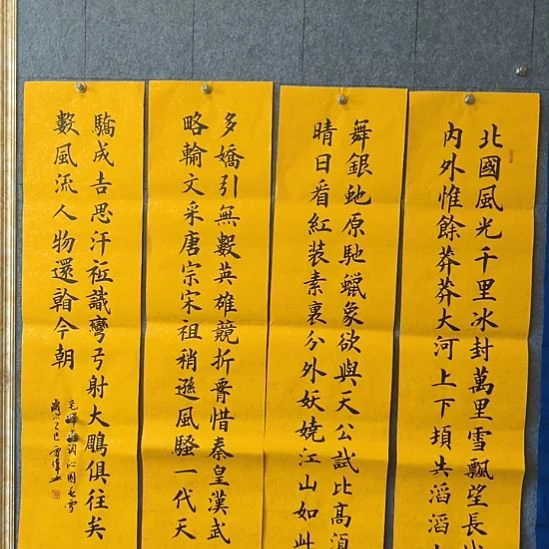 北國風光千里冰封萬里雪飄望長
內外惟餘莽莽大河上下頓失滔滔
舞銀蛇原馳蠟象欲與天公試比高須
晴日看紅装素裹分外妖嬈江山如此
多嬌引無數英雄競折
惜秦皇漢武
略輸文采唐宗宋祖稍遜風騷一代天
驕成吉思汗
識彎弓射大鵰俱往矣
數風流人物還
今朝